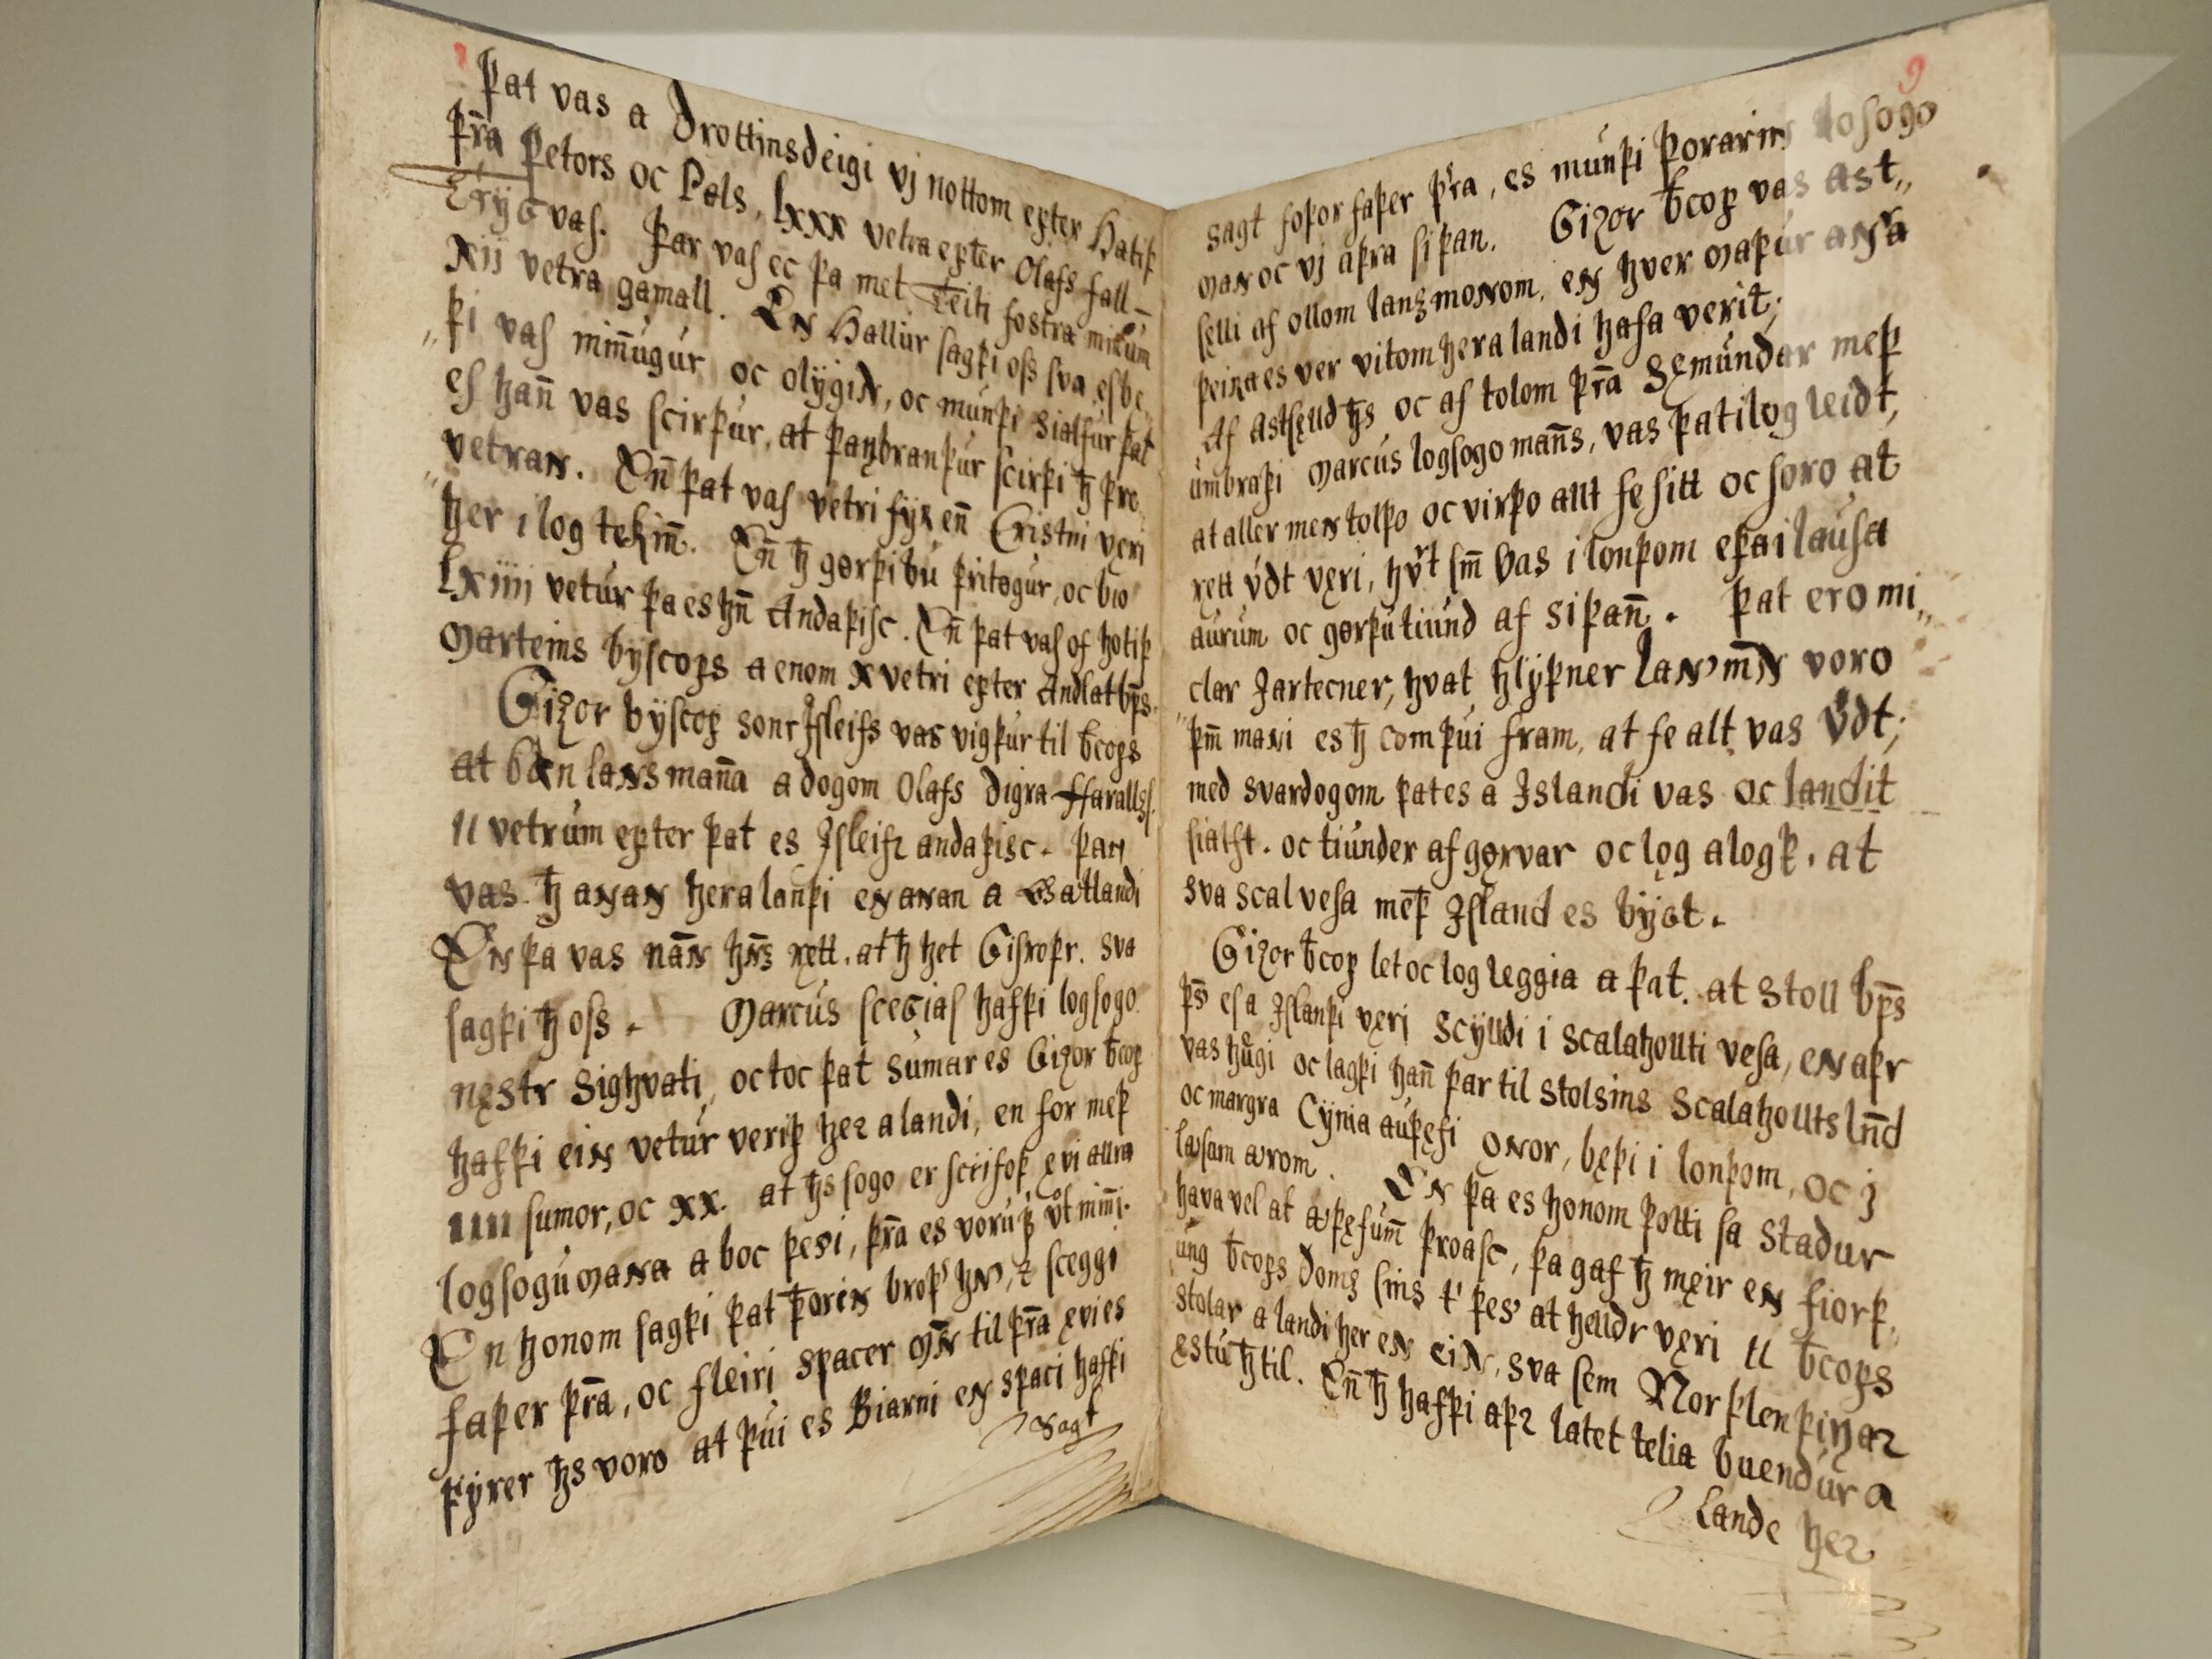 þat vas a Drottinsdeigi vj nottom epter Hatiþ
þr̄a Petors oc Pals, lxxx vetra epter Olafs fall
Tryɢvaſ. Þar vaſ ec þa met Teiti fostra minum
xij vetra gamall. En Hallur ſagþi oſs sva es be„
„þi vaſ min̄úgúr oc olÿgin, oc munþi sialfúr þat
eſ han̄ vas ſcirþúr, at þanbranþúr ſcirþi ħ þre
vetran. En̄ þat vaſ vetri fÿʀ en̄ Cristni veri
her i log tekin̄. En̄ ħ gørþi bú þritøgúr, oc bio
lxiiij vetúr þa es hn̄ Andaþiſc. En̄ þat vaſ of hotiþ
Marteins bÿſcops a enom x vetri epter Andlat bp̄s.
Gizor bÿſcop sonr Jſleifs vas vigþúr til ƀcops
at bœn lansman̄a a dogom Olafs digra Haralls ſ.
ii vetrúm epter þat es Jſleifr andaþisc. þan
vas ħ anan hera lanþi en anan a Gatlandi
En þa vas nān hn̄s ʀętt. at ħ het Giſroþr. sva
ſagþi ħ oſs. Marcús ſceɢiaſ hafþi logſogo
nęstr Sighvati, oc toc þat súmar es Gizor ƀcop
hafþi ein vetúr veriþ her a landi, en for meþ
iiii ſumor, oc xx. at ħs ſogo er ſcrifoþ ęvi allra
logſogúmana a boc þesi, þr̄a es vorú þ vͦt min̄i.
En honom ſagþi þat þorēn broþ' hn̄, z sceggi
faþer þr̄a, oc fleiri spacer mn̄ til þr̄a ęvi es
fÿrer ħs voro at þúi es Biarni en spaci hafþi
Sagt
9
sagt foþor faþer þr̄a, es munþi þorarin loſogo
man oc vj aþra siþan. Gizor ƀcop vas ast„
ſęlli af ollom lanzmonom, en hver maþúr anaʀa
þeira es ver vitom hera landi hafa verit;
Af astſęlld ħs oc af tolom þr̄a Sęmúndar meþ
úmbraþi Marcús logſogo man̄s, vas þat i log leidt,
at aller men tolþo oc virþo allt fe sitt oc ſoro at
ʀett vͮdt vęri, hvͬt ſm̄ vas i lonþom eþa i lauſa
aurum oc gørþú tiúnd af siþan̄. þat ero mi„
clar Jartecner, hvat hlÿþner lanſm̄n voro
þm̄ mani es ħ com þúi fram, at fe alt vas Vͮdt;
med svardogom þat es a Jslandi vas oc landit
sialft. oc tiúnder af gørvar oc lǫg a logþ, at
sva scal vesa meþ Jſland es bÿɢt.
Gizor ƀcop let oc log leggia a þat. at stoll bp̄s
þs̄ es a Jſlanþi vęri scÿlldi i scalahollti vesa, en aþr
vas hv̊gi oc lagþi han̄ þar til stolsins Scalahollts ln̄d
oc margra Cÿnia auþęfi onor, bęþi i lonþom, oc j
laſam arom. En þa es honom þotti ſa Stadur
hava vel at aþęfúm̄ þroasc, þa gaf ħ męir en fiorþ„
úng ƀcops doms ſins t' þes' at helldr vęri ii ƀcops
stolar a landi her en ein, sva ſem Norþlenþinɢar
ęstú ħ til. En̄ ħ hafþi aþr latet telia buendúr a
Lande her